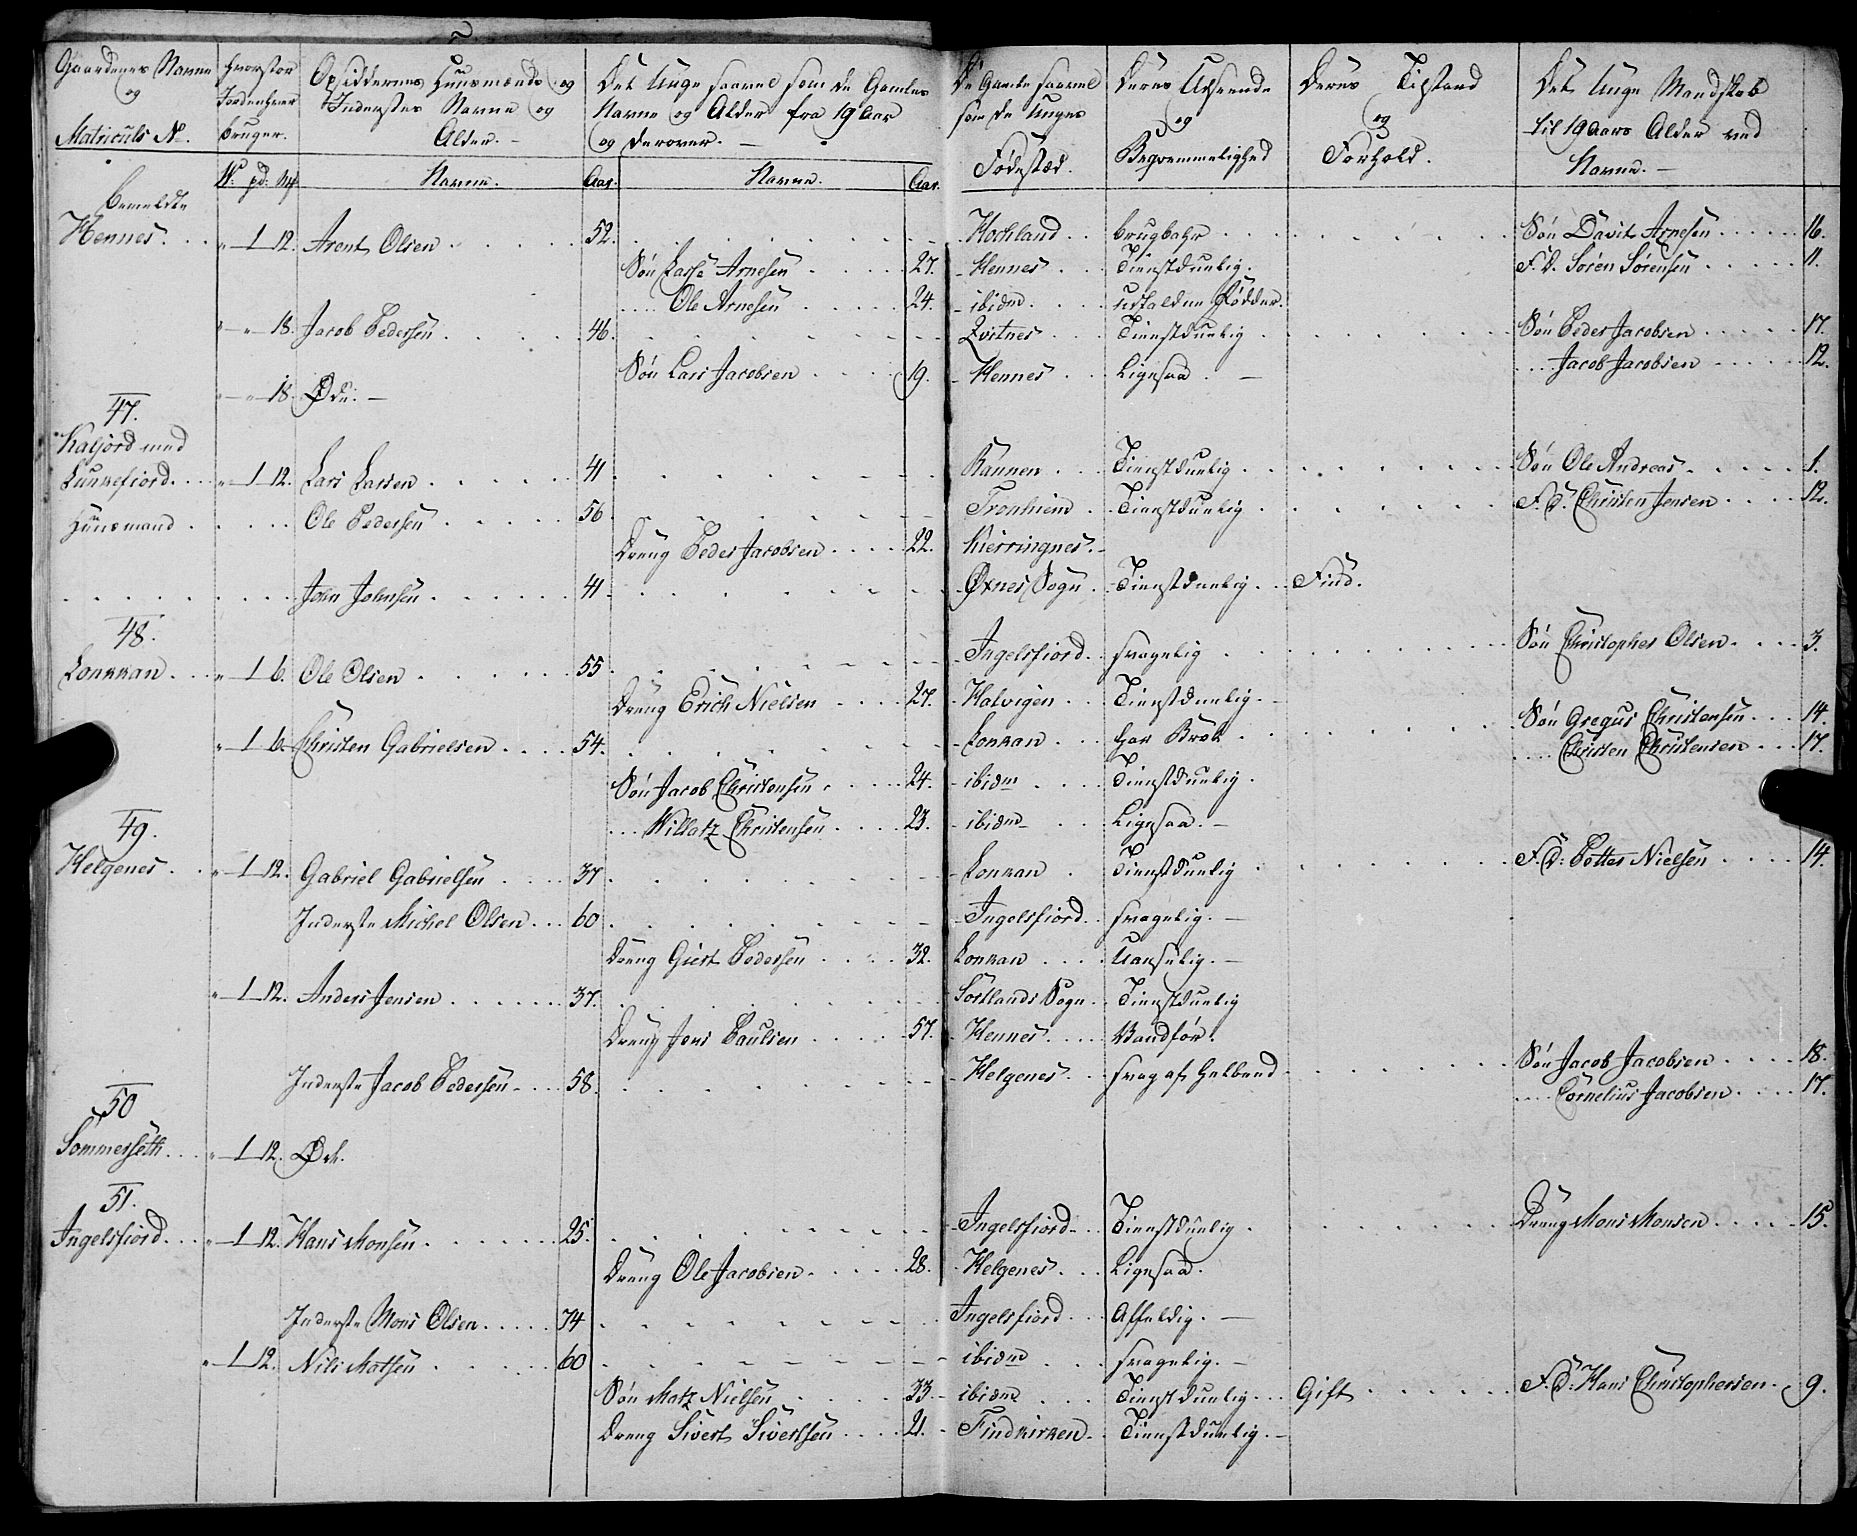 Gaardenes Navne og Matriculs No.
Hvorstor Jordenhver bruger.
Opsiddernes Huusmænds og Indersters Navne og Alder.
Det Unge saavel som de Gamles Navne og Alder fra 19 Aar og derover.
De Gamle saavel som de Unges Fødestæd.
Deres Udseende og Beqvemmelighed
Deres Tilstand og Forhold.
Det Unge Mandskab til 19 Aars Alder ved Navne.
W: pd: Mk Navne. Aar. Navne. Aar.
bemeldte
Hennes. " 1 12. Arent Olsen 52. Hochland brugbahr Søn Davit Arnesen 16.
Søn Lars Arnesen 27. Hennes Tienstdunlig. F. d. Sören Sörensen 11.
Ole Arnesen 24. ibidm udfalden Fødder.
" " 18. Jacob Pedersen 46. Qvitnes Tienstdunlig Søn Peder Jacobsen 17.
Søn Lars Jacobsen 19. Hennes Ligesaa. Jacob Jacobsen 12.
" " 18. Øde.
47.
Kaljord med
Lunnefiord " 1 12. Lars Larsen 41 Rannen Tienstdunlig Søn Ole Andreas 1.
Huusmand Ole Pedersen 56 Tronhiem Tienstdunlig F. d. Christen Jensen 12.
Dreng Peder Jacobsen 22. Kierringnes.
John Johnsen 41 Øxnes Sogn Tienstdunlig Find.
48.
Lonkkan " 1 6. Ole Olsen 55 Ingelsfiord svagelig Søn Christopher Olsen 3.
Dreng Erich Nielsen 27. Halvigen Tienstdunlig.
" 1 6. Christen Gabrielsen 54. Lonkan har Brok Søn Gregus Christensen 14.
Christen Christensen 17.
Søn Jacob Christensen 24. ibidm Tienstdunlig.
Willatz Christensen 23. ibidm Ligesaa.
49.
Helgenes " 1 12. Gabriel Gabrielsen 37 Lonkan Tienstdunlig F. d: Petter Nielsen 14.
Inderste Michel Olsen 60 Ingelsfiord svagelig.
Dreng Giert Pedersen 32. Lonkan Uanselig.
" 1 12. Anders Jensen 37. Sortlands Sogn Tienstdunlig
Dreng Jens Paulsen 57. Hennes Vandfør.
Inderste Jacob Pedersen 58. Helgenes svag af Helbred Søn Jacob Jacobsen 18.
Cornelius Jacobsen 17.
50
Sommerseth " 1 12. Øde.
51.
Ingelsfiord " 1 12. Hans Monsen 25. Ingelsfiord Tienstdunlig. Dreng Mons Monsen 15.
Dreng Ole Jacobsen 28. Helgenes Ligesaa.
Inderste Mons Olsen 74 Ingelsfiord Affeldig.
" 1 12. Nils Matsen 60 ibidm svagelig.
Søn Matz Nielsen 33. ibidm Tienstdunlig Gift F. d: Hans Christophersen 9.
Dreng Sivert Siversen 21. Findkirken Tienstdunlig.